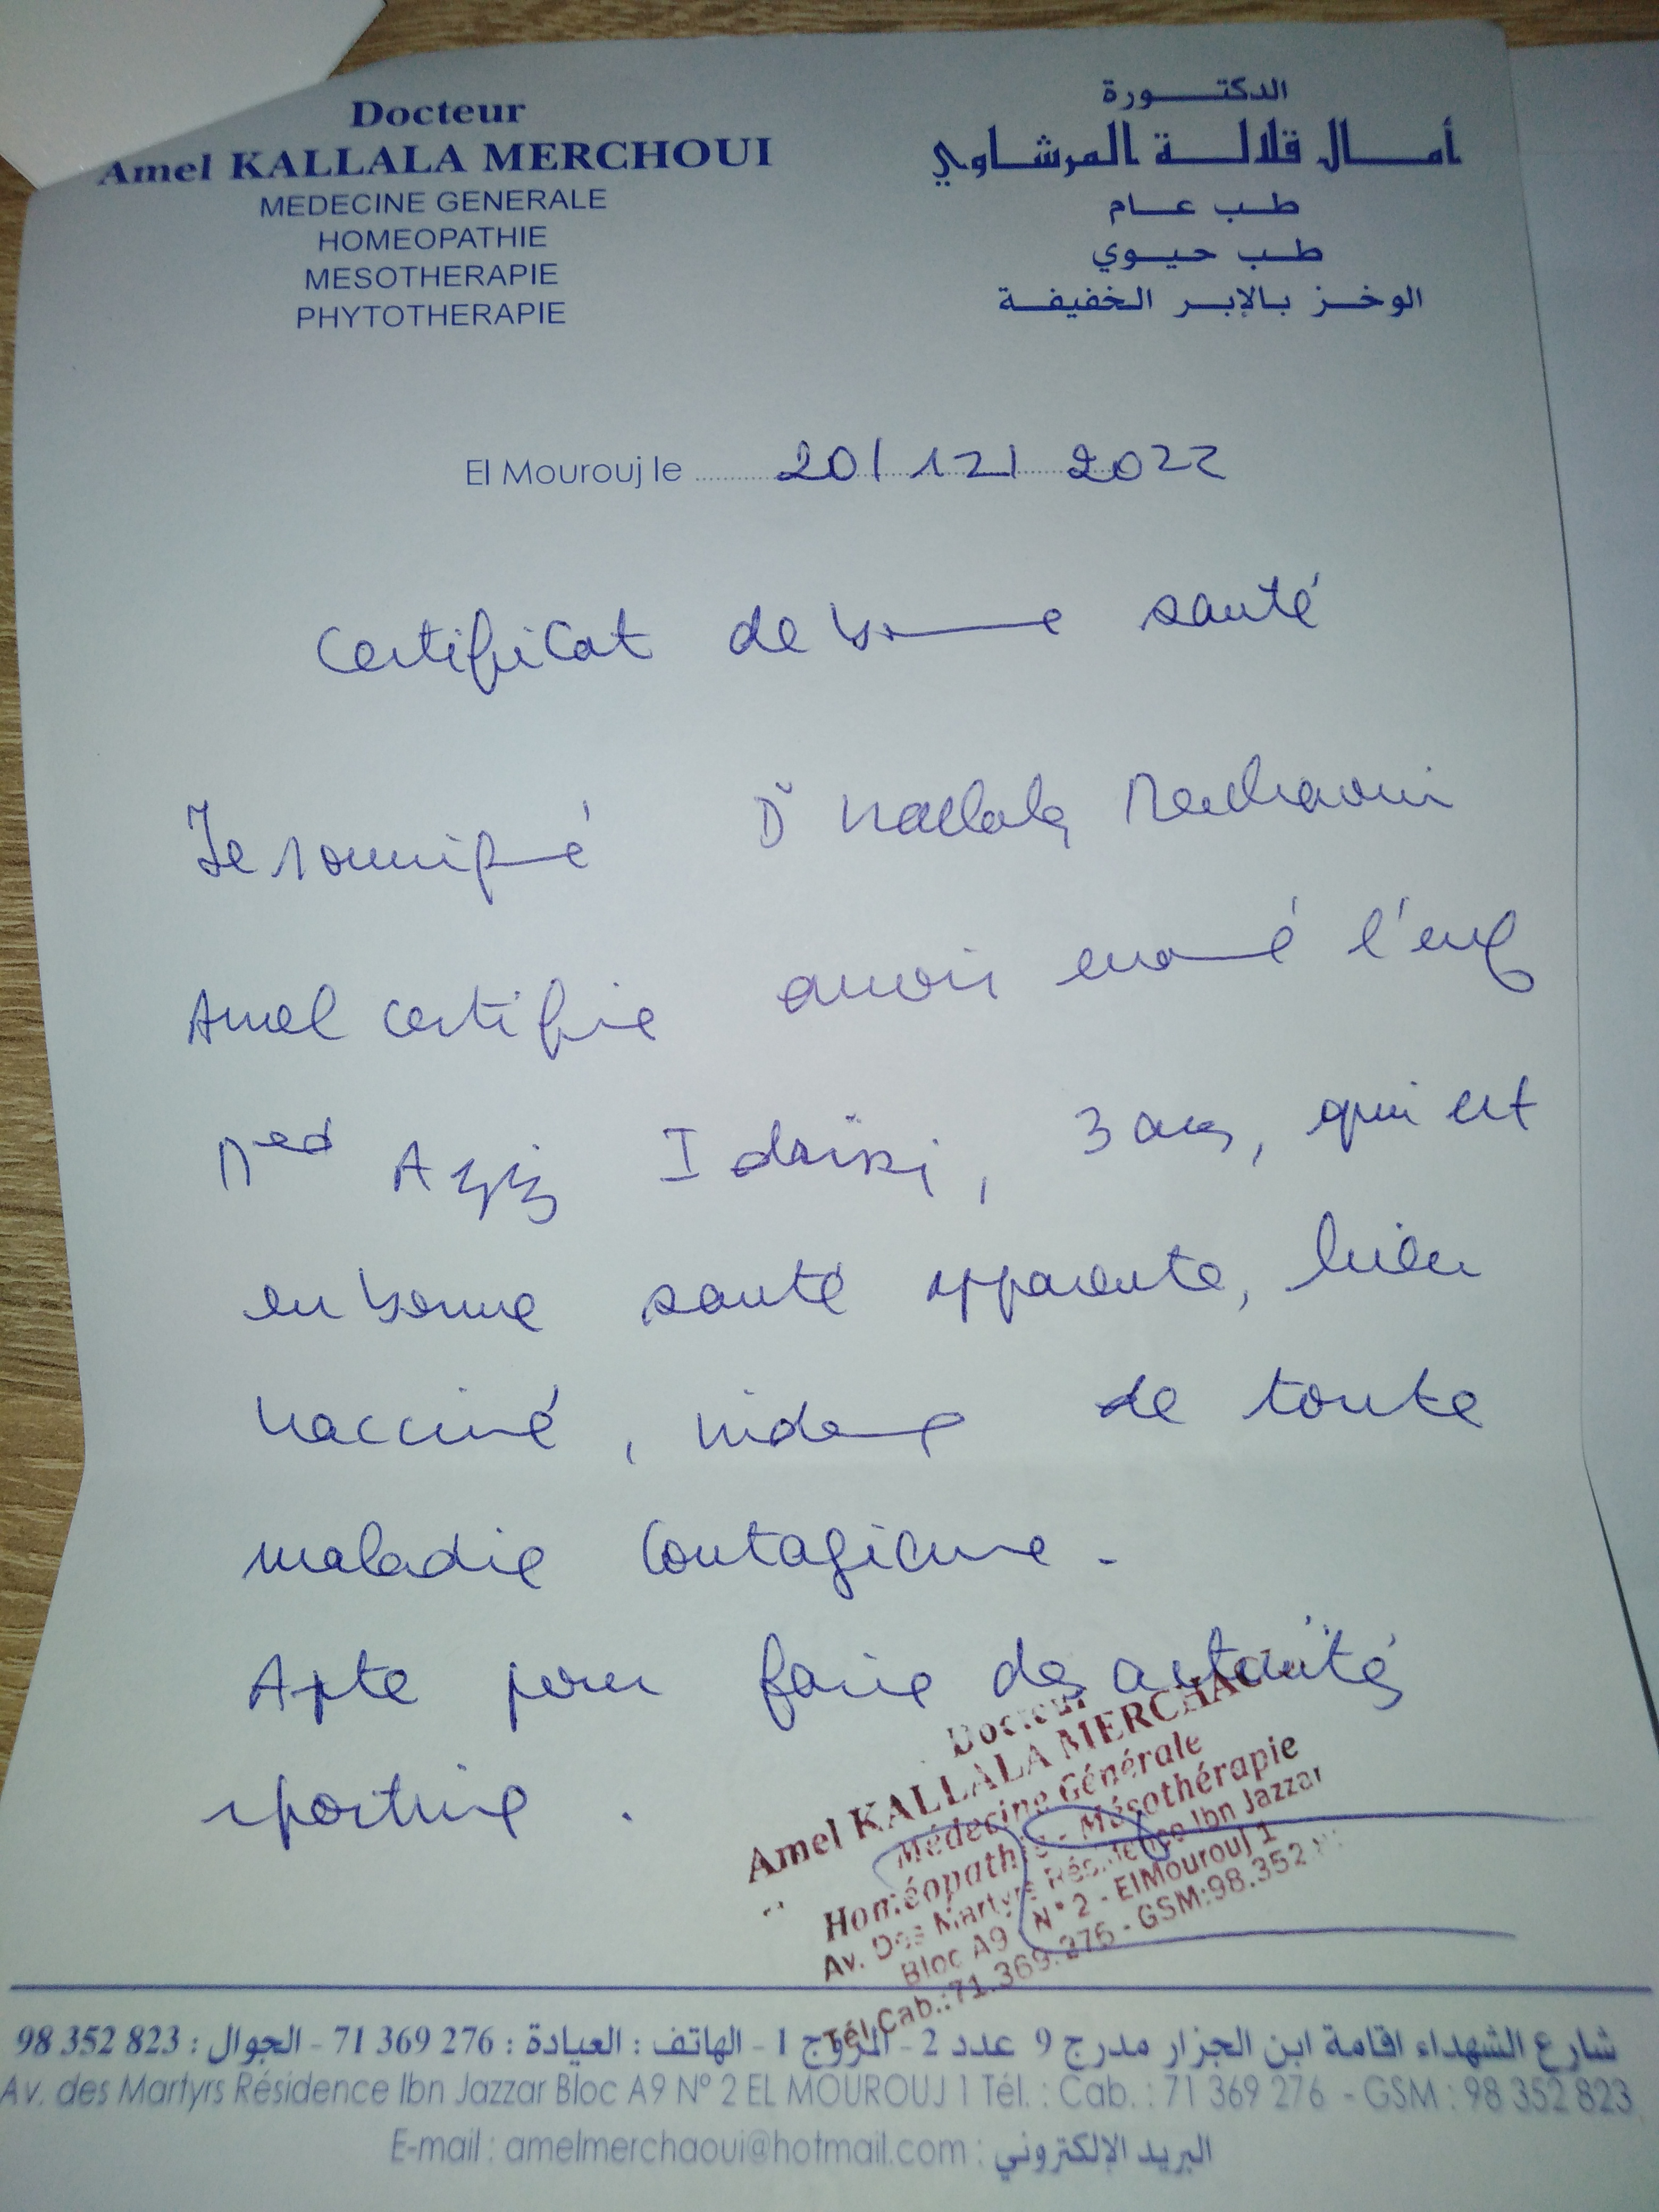 Docteur
Amel KALLALA MERCHOUI
MEDECINE GENERALE
HOMEOPATHIE
MESOTHERAPIE
PHYTOTHERAPIE
الدكتورة
أمال قلالة المرشاوي
طب عام
طب حيوي
الوخز بالإبر الخفيفة
El Mourouj le 20/12/2022
Certificat de bonne santé
Je soussigné Dr Kallala Merchaoui
Amel certifie avoir examiné l'enf
Med Aziz Idrissi, 3 ans, qui est
en bonne santé apparente, bien
vacciné, indemne de toute
maladie contagieuse.
Apte pour faire des activités
sportive.
Docteur
Amel KALLALA MERCHAOUI
Médecine Générale
Homéopathie - Mésothérapie
Av. Des Martyrs Résidence Ibn Jazzar
Bloc A9 N° 2 - ElMourouj 1
Tél Cab.:71.369.276 - GSM:98.352
شارع الشهداء اقامة ابن الجزار مدرج 9 عدد 2 - المروج 1 - الهاتف : العيادة : 276 369 71 - الجوال : 823 352 98
Av. des Martyrs Résidence Ibn Jazzar Bloc A9 N° 2 EL MOUROUJ 1 Tél. : Cab. : 71 369 276 - GSM : 98 352 823
E-mail : amelmerchaoui@hotmail.com : البريد الإلكتروني